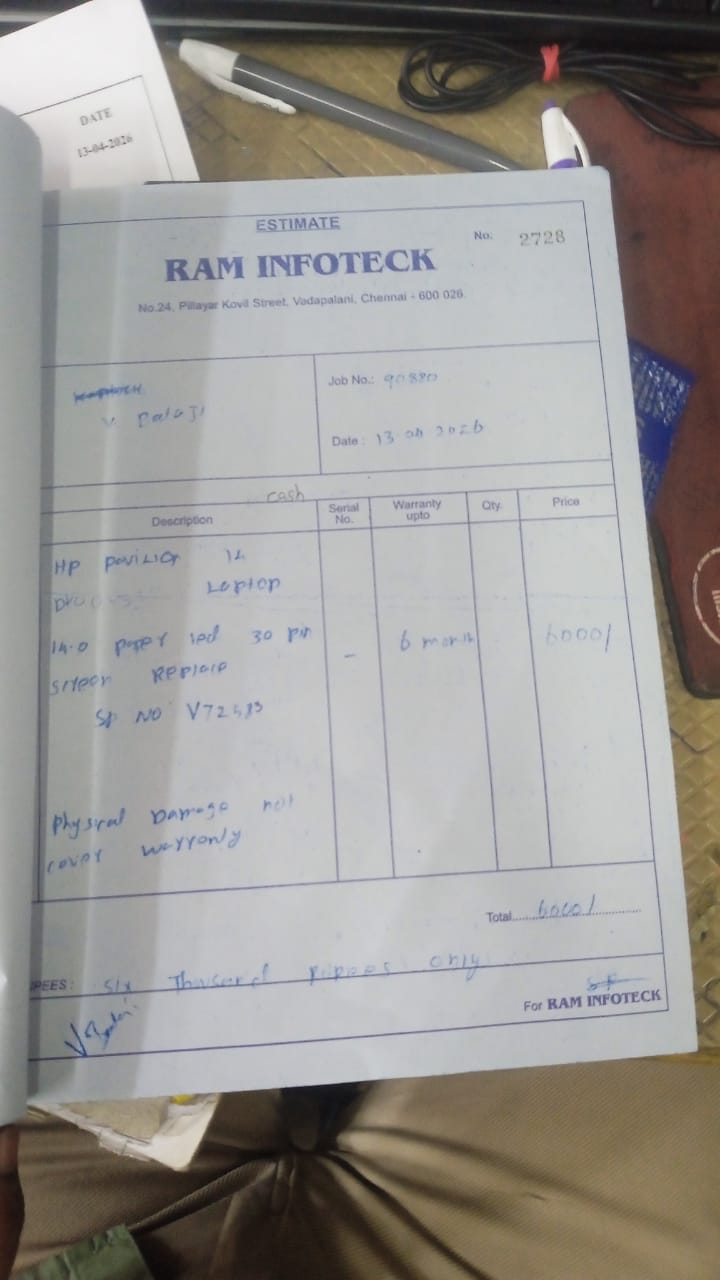 DATE
13-04-2026
ESTIMATE
No. 2728
RAM INFOTECK
No.24, Pillayar Kovil Street, Vadapalani, Chennai - 600 026.
V Balaji
Job No.: 90880
Date : 13 04 2026
cash
Description
Serial No.
Warranty upto
Qty.
Price
HP pavilion 14
Laptop
14.0 paper led 30 pin
screen Replace
- 6 month 6000/
SP NO V72583
physical Damage not
cover warranty
Total 6000/
RUPEES : six Thousand rupees only
For RAM INFOTECK